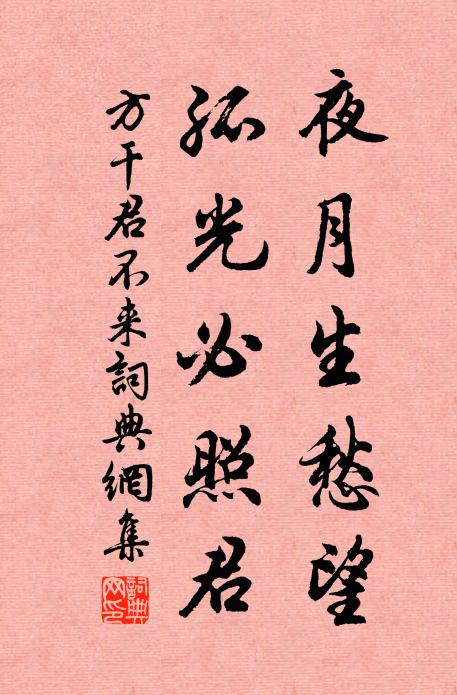 夜月生愁望
孤光必照君
方干君不来詞典網集
詞典網印